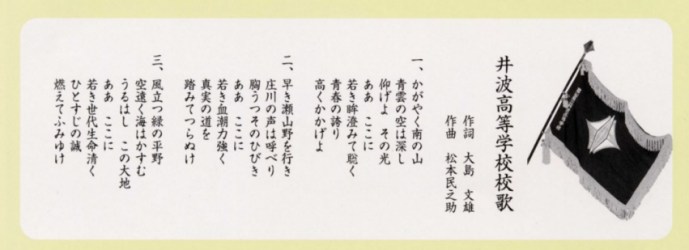 井波高等学校校歌
作詞 大島 文雄
作曲 松本民之助
一、かがやく南の山
青雲の空は深し
仰げよ その光
ああ ここに
若き眸澄みて聡く
青春の誇り
高くかかげよ
二、早き瀬山野を行き
庄川の声は呼べり
胸うつそのひびき
ああ ここに
若き血潮力強く
真実の道を
踏みてつらぬけ
三、風立つ緑の平野
空遠く海はかすむ
うるはし この大地
ああ ここに
若き世代生命清く
ひとすじの誠
燃えてふみゆけ